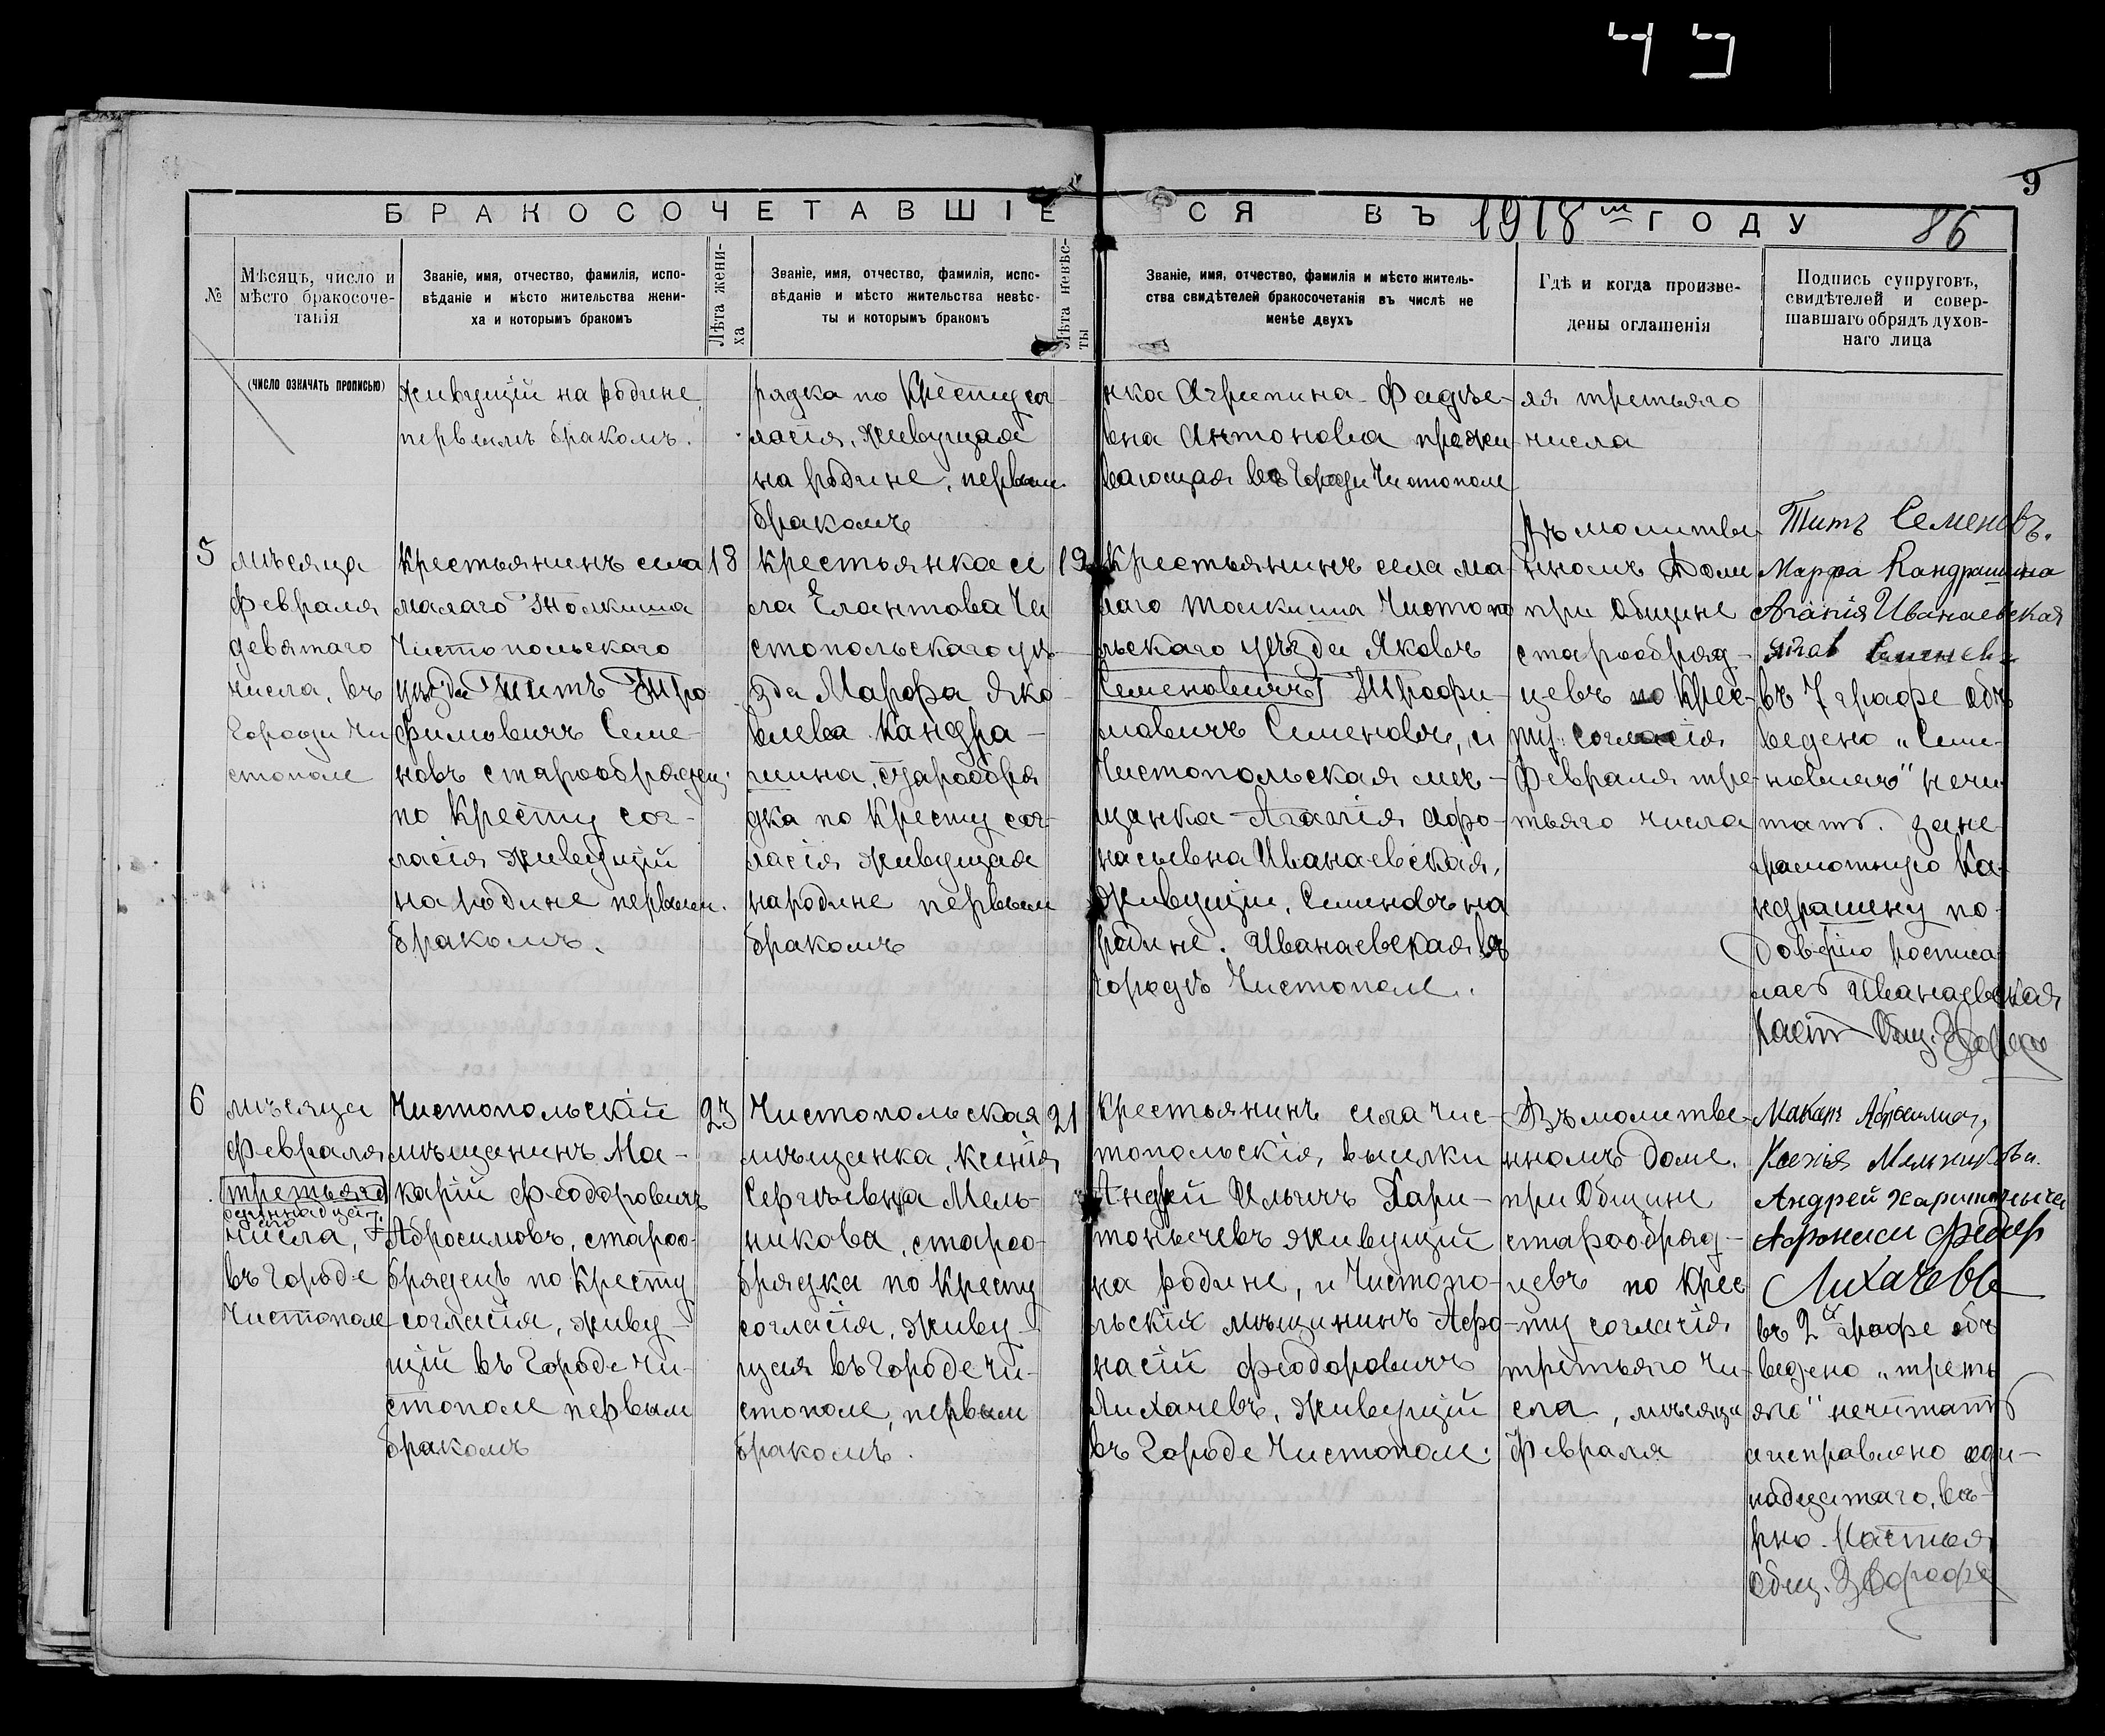 9
БРАКОСОЧЕТАВШІЕСЯ ВЪ 1918 м ГОДУ
86
№
Мѣсяцъ, число и
мѣсто бракосоче-
танія
(число означать прописью)
Званіе, имя, отчество, фамилія, испо-
вѣданіе и мѣсто жительства жени-
ха и которымъ бракомъ
Лѣта жени-
ха
Званіе, имя, отчество, фамилія, испо-
вѣданіе и мѣсто жительства невѣс-
ты и которымъ бракомъ
Лѣта невѣс-
ты
Званіе, имя, отчество, фамилія и мѣсто житель-
ства свидѣтелей бракосочетанія въ числѣ не
менѣе двухъ
Гдѣ и когда произве-
дены оглашенія
Подпись супруговъ,
свидѣтелей и совер-
шавшаго обрядъ духов-
наго лица
живущій на родине,
первымъ бракомъ.
рядка по Кресту сог-
ласія, живущая
на родине, первым
бракомъ
нка Агрипина Фадѣе-
вна Антонова прожи
вающая въ Городи Чистополе
ля третьяго
числа
5
мѣсяца
Февраля
девятаго
числа, въ
Городи Чи
стополе
Крестьянинъ села
малаго Толкиша
Чистопольскаго
уѣзда Титъ Тро
фимовичъ Семе-
новъ старообрядец
по Кресту сог-
ласія живущій
на родине первым.
бракомъ.
18
Крестьянка се
ла Елантова Чи
стопольскаго уѣ
зда Марфа Яко-
влева Кандра-
шина, старообря
дка по Кресту сог-
ласія живущая
на родине первым
бракомъ
19
Крестьянинъ села ма
лаго Толкиша Чистопо
льскаго уѣзда Яковъ
Семеновичъ Трофи-
мовичъ Семеновъ, и
Чистопольская мѣ-
щанка Агапія Афо-
насьевна Иванаевская,
живущіи, Семеновъ на
родине. Иванаевская въ
городѣ Чистополе.
Въ молитве
нномъ Доми
при Общине
старообряд-
цевъ по Крес-
ту согласія
Февраля тре-
тьяго числа
Титъ Семеновъ.
Марфа Кандрашина
Агапія Иванаевская
въ 7 графе объ
ведено „Семе-
новичъ" нечи
тать. за не
грамотную Ка-
ндрашину по
довѣрію росписа
лась Иванаевская
Наст. Общ.
6
мѣсяца
Февраля
третьяго
одиннадцат.
аго
числа,
въ Городе
Чистополе
Чистопольскій
мѣщанинъ Ма-
карій Феодоровичъ
Абросимовъ, староо-
брядецъ по Кресту
согласія, живу-
щій въ Городе Чи-
стополе первым
бракомъ
23
Чистопольская
мѣщанка, Ксенія
Сергѣевна Мель-
никова, староо-
брядка по Кресту
согласія, живу-
щая въ Городе Чи-
стополе, первым
бракомъ.
21
Крестьянинъ села Чис-
топольскія выселки
Андрей Ильичъ Хари-
тонычевъ живущій
на родине, и Чистопо-
льскій мѣщининъ Афо-
насій Феодоровичъ
Лихачевъ, живущій
въ Городе Чистополе.
Въ молитве
нномъ доме.
при Общине
старообряд-
цевъ по Крес
ту согласія
третьяго чи
сла, мѣсяца
Февраля
Макаръ Абросимов,
Ксенія Мельникова.
Андрей Харитонычев
Афонаси Федор
Лихачевъ
въ 2й графе объ
ведено „треть
яго" нечитать
а исправлено оди-
надцатаго, вѣ-
рно. Настоя
Общ.